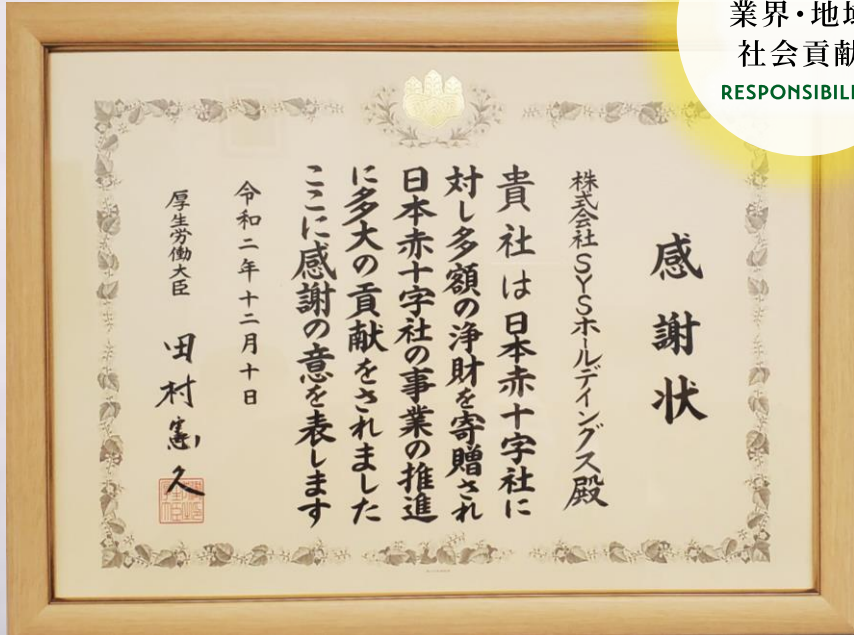 業界・地域
社会貢献
RESPONSIBILI
感謝状
株式会社SYSホールディングス殿
貴社は日本赤十字社に
対し多額の浄財を寄贈され
日本赤十字社の事業の推進
に多大の貢献をされました
ここに感謝の意を表します
令和二年十二月十日
厚生労働大臣 田村憲久